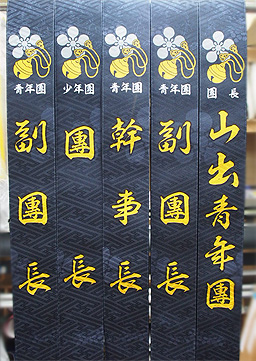 團長
山出青年團
青年團
副團長
青年團
幹事長
少年團
團長
青年團
副團長